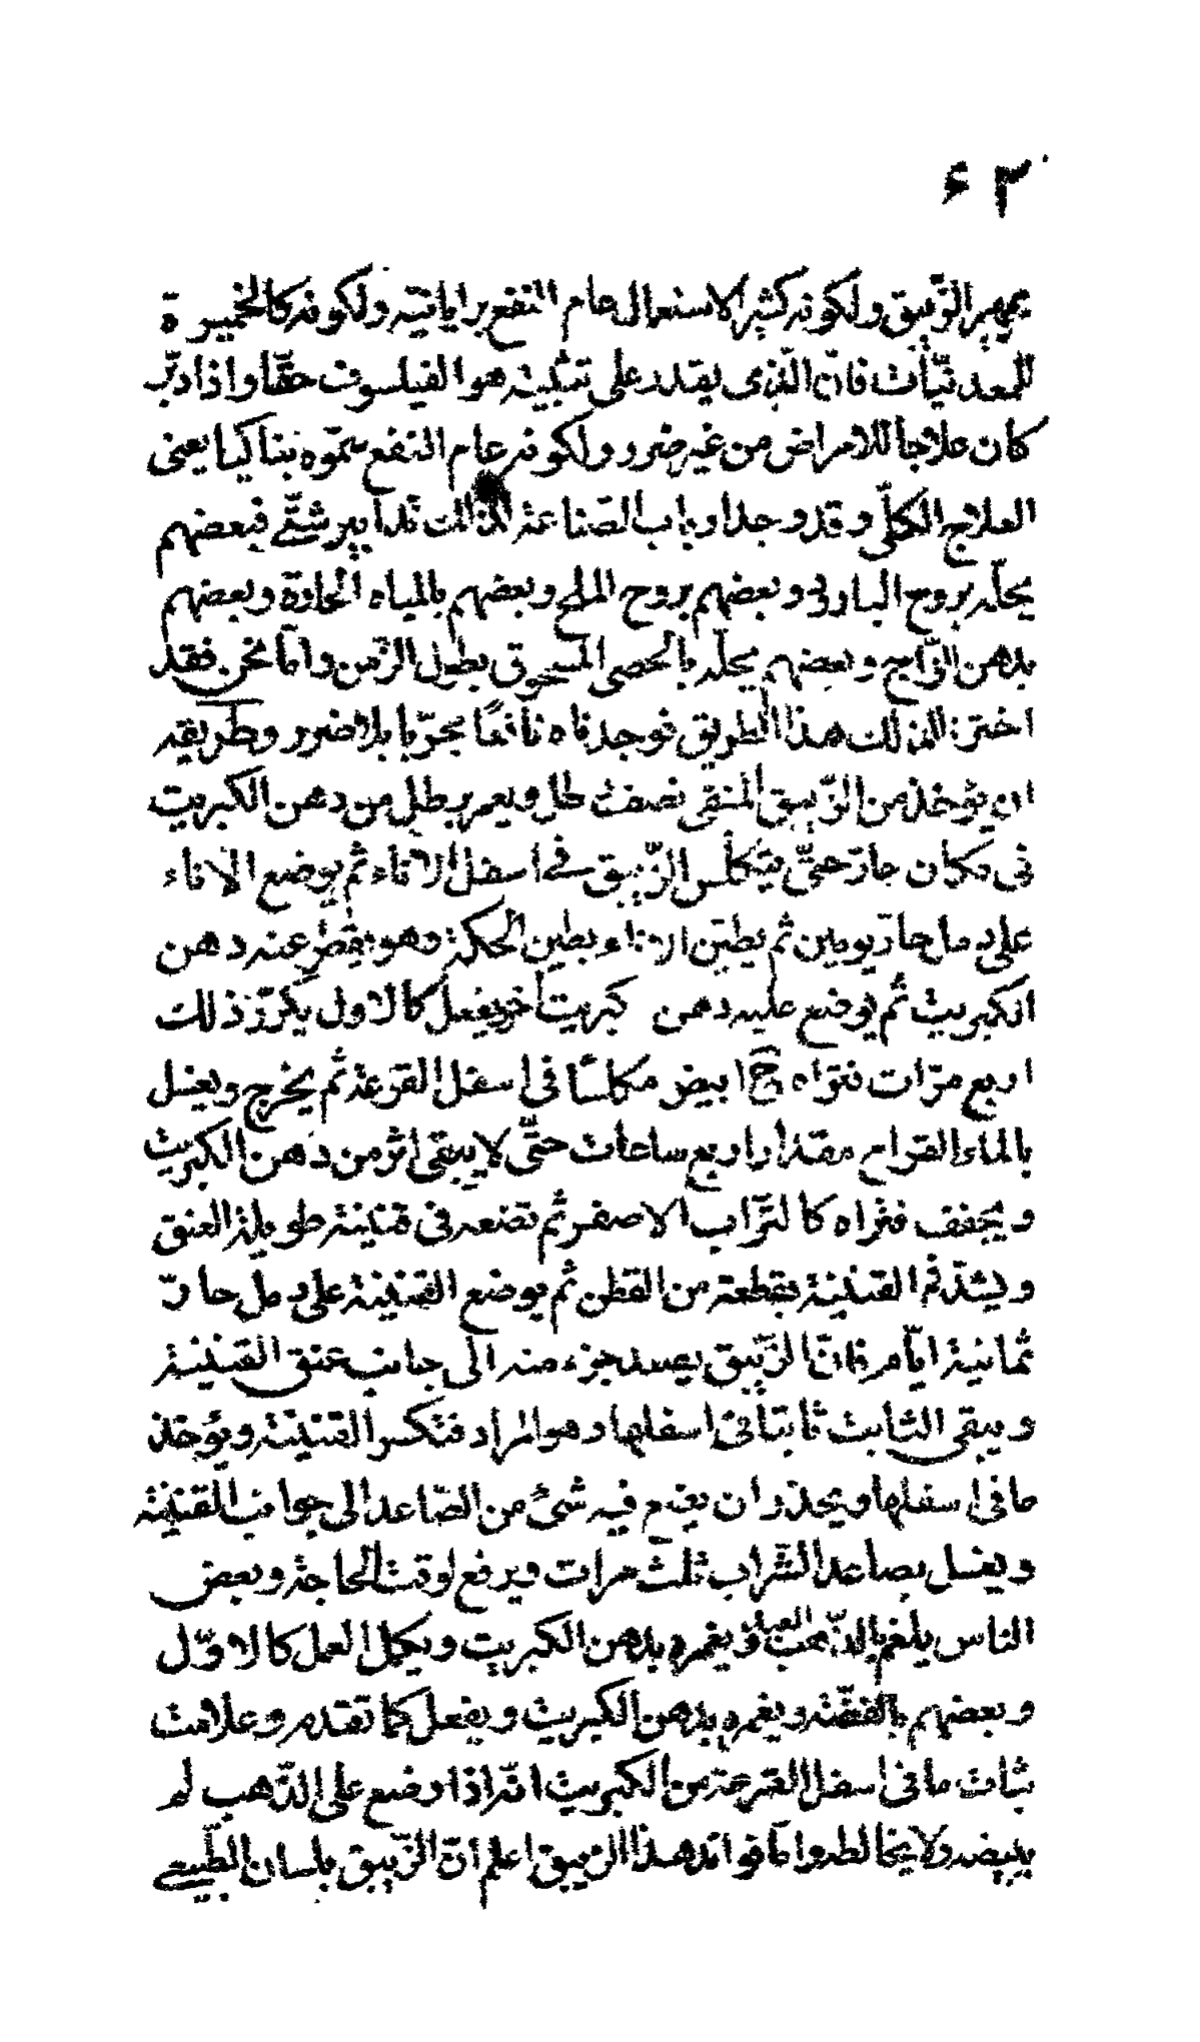 ٤٣
يمهر الزّيبق ولكونه كثير الاستعمال عام النفع برايانيته ولكونه كالخميرة
للمعدنيّات فانّ الّذى يقدر على تثبيته هو الفيلسوف حقّا واذا دبّر
كان علاجا للامراض من غير ضرر ولكونه عام النفع سمّوه بناكيا يعنى
العلاج الكلّى وقد وجدارباب الصّناعة لذالك تدابير شتّى فبعضهم
يحلّه بروح البارود وبعضهم بروح الملح وبعضهم بالمياه الحادّة وبعضهم
بدهن الزّاج وبعضهم يحلّه بالحصى المسحوق بطول الزّمن وامّا نحن فقد
اخترنا لذلك هذا الطريق فوجدناه نافعًا مجرّبا بلا ضرر وطريقه
ان يؤخذ من الزّيبق المنقى نصف رطل ويغمر برطل من دهن الكبريت
فى مكان حارّ حتّى يتكلّس الزّيبق فى اسفل الاناء ثم يوضع الاناء
على رمل حارّ يومين ثم يطيّن الاناء بطين الحكمة وهو يقطر عنه دهن
الكبريت ثم يوضع عليه دهن كبريت آخر يفعل كالاول يكرّر ذلك
اربع مرّات فتراه ح ابيض مكلسًا فى اسفل القرعة ثم يخرج ويغسل
بالماء القراح مقدار اربع ساعات حتّى لا يبقى اثر من دهن الكبريت
ويجفف فتراه كالتّراب الاصفر ثم تضعه فى قنينة طويلة العنق
ويشدّ فم القنينة بقطعة من القطن ثم يوضع القنينة على رمل حارّ
ثمانية ايّام فانّ الزّيبق يصعد جزء منه الى جانب عنق القنينة
ويبقى الثابت ثابتا فى اسفلها وهو المراد فتكسر القنينة ويؤخذ
ما فى اسفلها ويحذر ان يقع فيه شئ من الصّاعد الى جوانب القنينة
ويغسل بصاعد الشّراب ثلث مرات ويرفع لوقت الحاجة وبعض
الناس يلغم بالذّهب العبد ويغمره بدهن الكبريت ويكمل العمل كالاوّل
وبعضهم بالفضّة ويغمره بدهن الكبريت ويفعل كما تقدم وعلامة
ثبات ما فى اسفل القرعة من الكبريت انّه اذا وضع على الذّهب لم
يبيضه ولا يخالطه وامّا فوائد هذا الزيبق اعلم انّ الزّيبق بلسان الطّبيعى